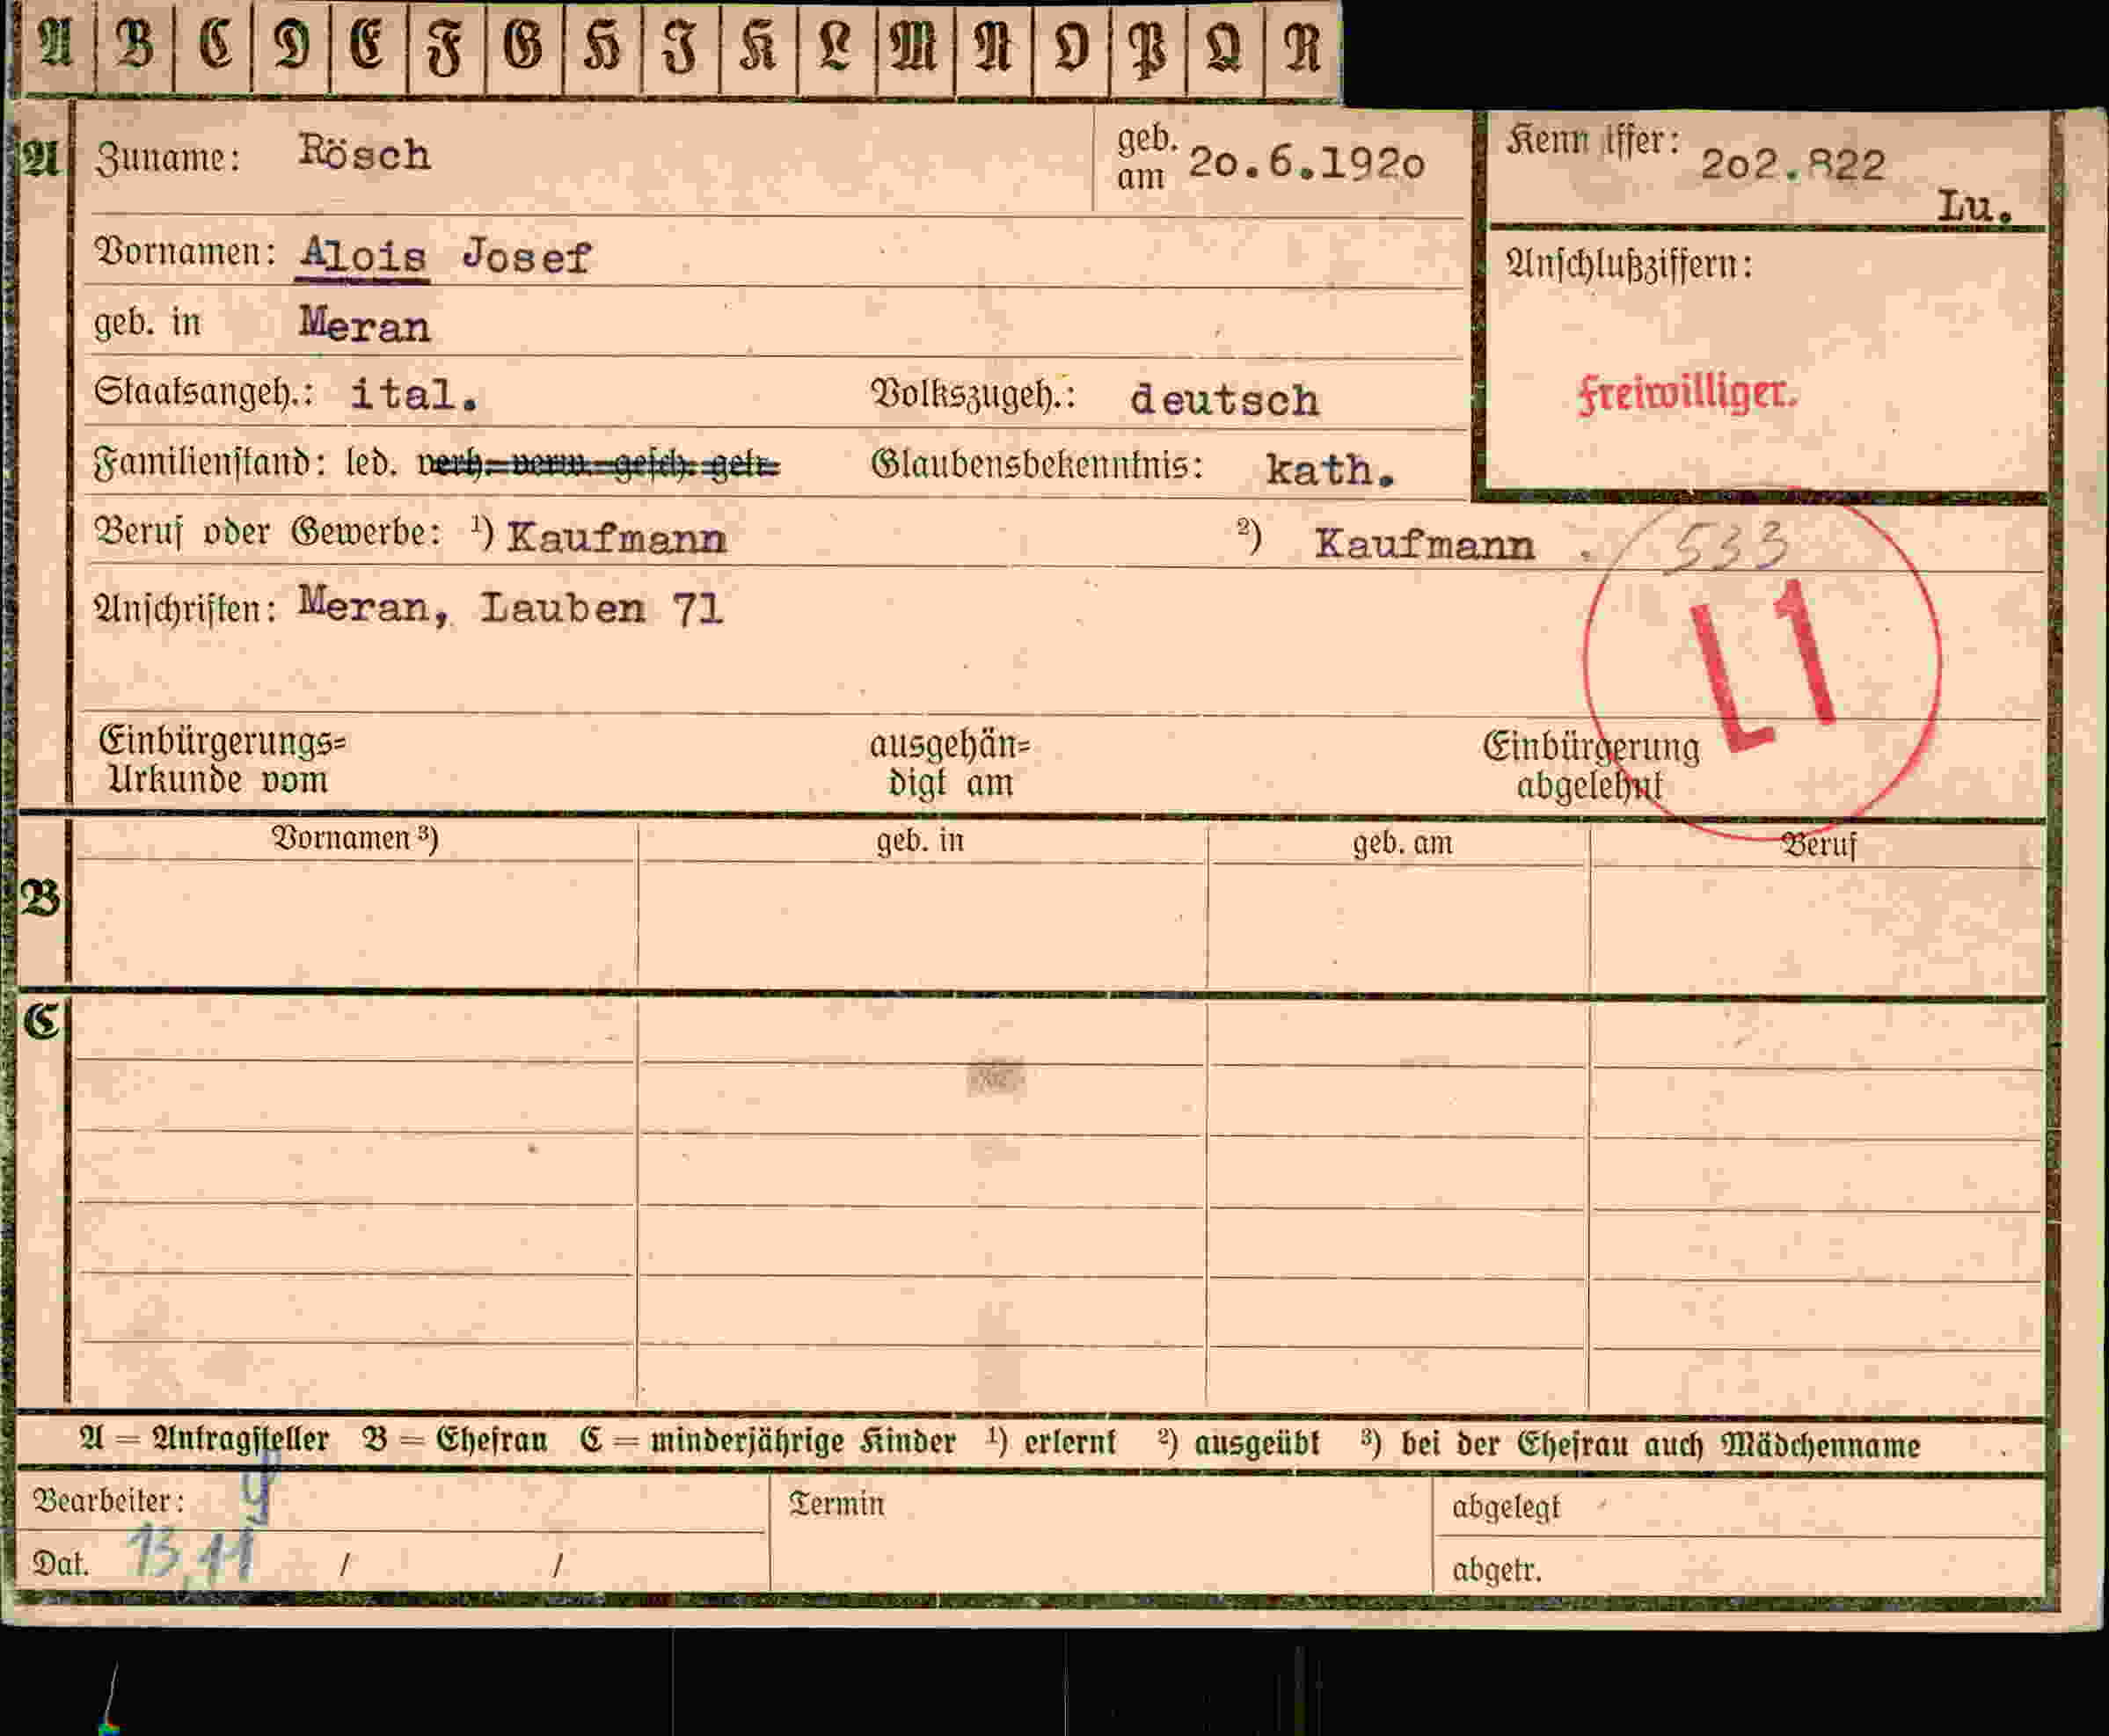 A B C D E F G H I K L M N O P Q R
A Zuname: Rösch geb. am 20.6.1920 Kenn iffer: 202.822
Lu.
Vornamen: Alois Josef Anschlußziffern:
geb. in Meran
Staatsangeh.: ital. Volkszugeh.: deutsch Freiwilliger.
Familienstand: led. verh. verw. gesch. getr. Glaubensbekenntnis: kath.
Beruf oder Gewerbe: ¹) Kaufmann ²) Kaufmann . 533
Anschriften: Meran, Lauben 71
L1
Einbürgerungs= ausgehän= Einbürgerung
Urkunde vom digt am abgelehnt
Vornamen ³) geb. in geb. am Beruf
B
C
A = Antragsteller B = Ehefrau C = minderjährige Kinder ¹) erlernt ²) ausgeübt ³) bei der Ehefrau auch Mädchenname
Bearbeiter: Termin abgelegt
Dat. 13.11 / / abgetr.